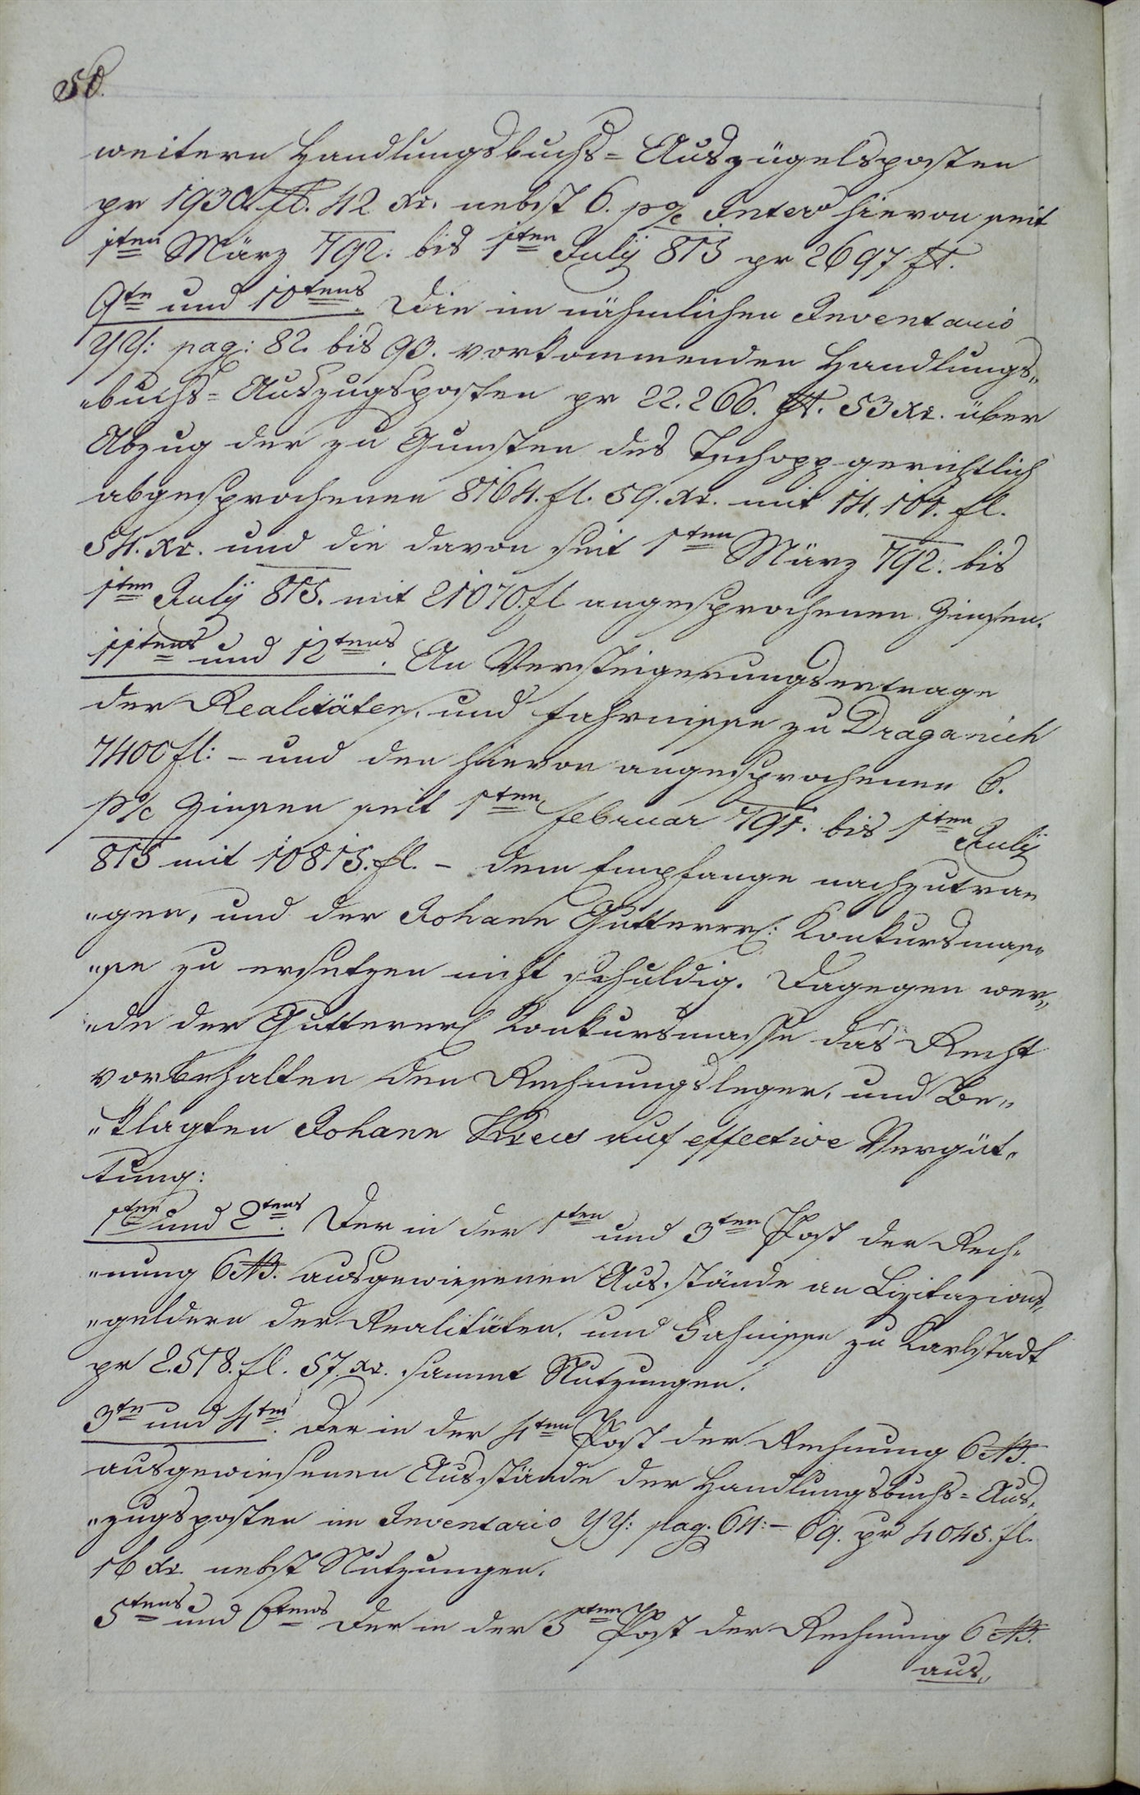 50.
weitern Handlungsbuchs=Auszügelsposten
pr 1930 fl. 42 xr. nebst 6. p% Inter° hievon seit
1ten März 792. bis 1ten Julÿ 815 pr 2697 fl.
9te und 10tens. Die im nähmlichen Inventario
YY: pag: 82. bis 93. vorkommenden Handlungs„
„buchs=Auszugsposten pr 22.266. fl. 53 xr. über
Abzug der zu Gunsten des Tschopp gerichtlich
abgesprochenen 8164. fl. 59. xr. mit 14.101. fl.
54. xr. und die davon seit 1ten März 792. bis
1ten Julÿ 815. mit 21070. fl angesprochenen Zinsen.
11tens und 12tens. An Versteigerungsertrage
der Realitäten, und Fahrnisse zu Draganich
7400 fl: – und den hievon angesprochenen 6.
p% Zinsen seit 1ten Februar 791. bis 1ten Julÿ
815 mit 10815. fl. – dem Empfange nachzutra„
„gen, und der Johann Gutterer: Konkursmas„
„se zu ersetzen nicht schuldig. Dagegen wer„
„de der Gutterer Konkursmasse das Recht
vorbehalten den Rechnungsleger, und Be„
„klagten Johann auf effective Vergüt„
tung:
1ten und 2tens. Der in der 1ten und 3ten Post der Rech„
„nung 6 ausgewiesenen Ausstände an Lizitazions„
„geldern der Realitäten, und Fahrnisse zu Karlstadt
pr 2.518. fl. 57. xr. sammt Nutzungen.
3te und 4tes. Der in der 4ten Post der Rechnung 6
ausgewiesenen Ausstände der Handlungsbuchs=Aus„
„zugsposten im Inventario YY: pag. 64: – 69. pr 4045. fl.
16 xr. nebst Nutzungen.
5tens und 6tens Der in der 5ten Post der Rechnung 6
aus„